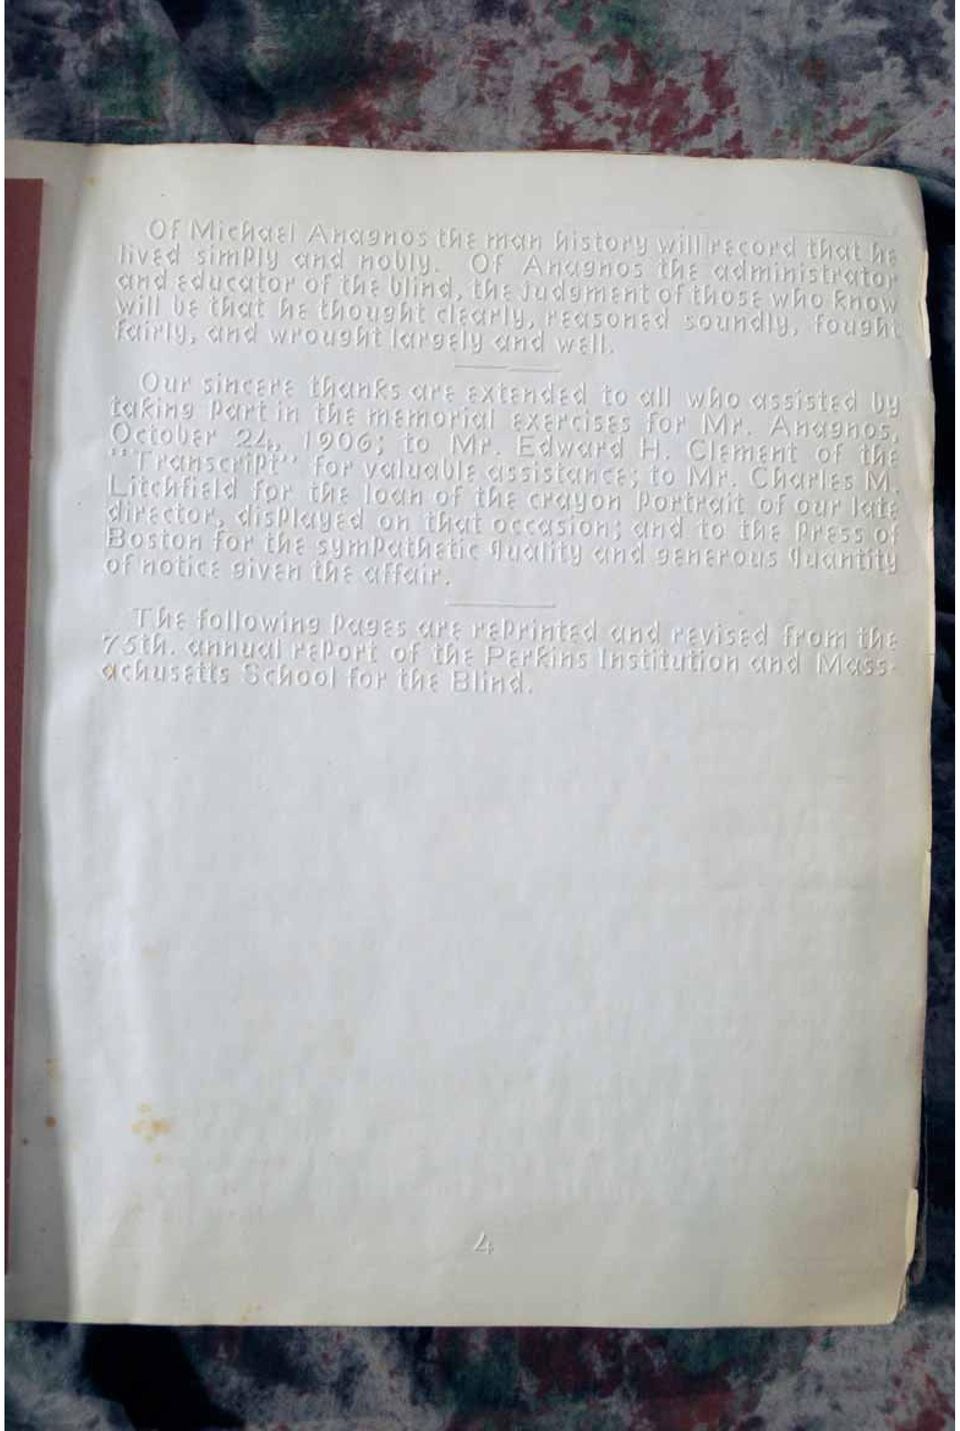 Of Michael Anagnos the man history will record that he
lived simply and nobly. Of Anagnos the administrator
and educator of the blind, the judgment of those who know
will be that he thought clearly, reasoned soundly, fought
fairly, and wrought largely and well.
Our sincere thanks are extended to all who assisted by
taking part in the memorial exercises for Mr. Anagnos,
October 24, 1906; to Mr. Edward H. Clement of the
"Transcript" for valuable assistance; to Mr. Charles M.
Litchfield for the loan of the crayon portrait of our late
director, displayed on that occasion; and to the press of
Boston for the sympathetic quality and generous quantity
of notice given the affair.
The following pages are reprinted and revised from the
75th. annual report of the Perkins Institution and Mass-
achusetts School for the Blind.
4